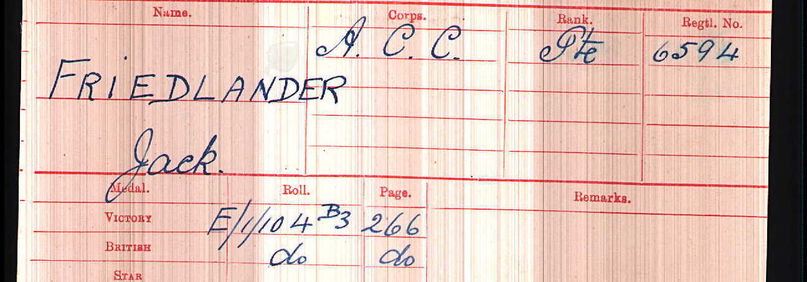 Name. Corps. Rank. Regtl. No.
A. C. C. Pte 6594
FRIEDLANDER
Jack.
Medal. Roll. Page. Remarks.
VICTORY E/1/104 B3 266
BRITISH do do
STAR